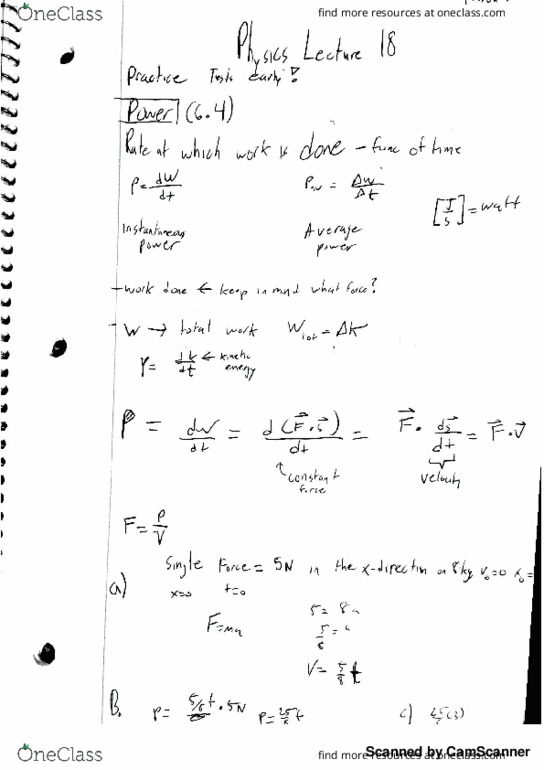 OneClass
find more resources at oneclass.com
Physics Lecture 18
Practice Tests early!
Power (6.4)
Rate at which work is done – func of time
P = dW/dt
Pav = ΔW/Δt
[J/s] = watt
Instantaneous power
Average power
– work done ← keep in mind what force?
- W → total work Wtot = ΔK
P = dk/dt ← kinetic energy
P = dW/dt = d(F⃗·s⃗)/dt = F⃗· ds⃗/dt = F⃗·V⃗
↑ constant force
velocity
F = P/V
a) Single Force = 5N in the x-direction on 8kg v₀=0 x₀=
x=0 t=0
F=ma
5 = 8a
5/8 = a
V = 5/8 t
B. P = 5/8 t · 5N P = 25/8 t
c)
Scanned by CamScanner
OneClass
find more resources at oneclass.com